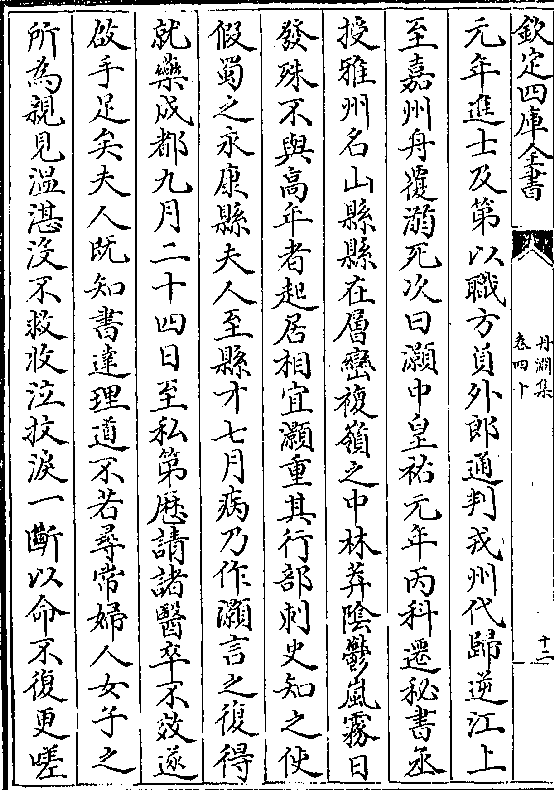 欽定四庫全書
丹淵集
卷四十
十二
元年進士及第以職方員外郎通判戎州代歸逆江上
至嘉州舟覆溺死次曰灝中皇祐元年丙科遷秘書丞
授雅州名山縣縣在層巒複嶺之中林莽陰鬱嵐霧日
發殊不與高年者起居相宜灝重其行部刺史知之使
假蜀之永康縣夫人至縣才七月病乃作灝言之復得
就藥成都九月二十四日至私第歷請諸醫卒不效遂
啟手足矣夫人既知書達理道不若尋常婦人女子之
所為親見溫湛没不救收泣抆淚一斷以命不復更嗟